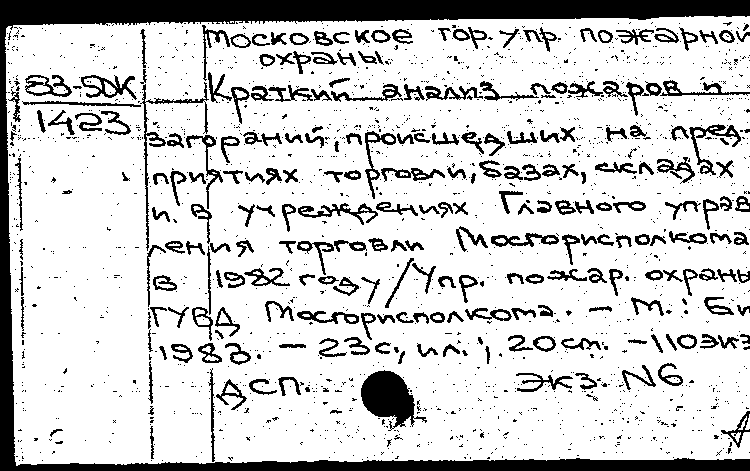 Московское гор. Упр. пожарной
охраны.
83-5ДК
1423
Краткий анализ пожаров и
загораний, происшедших на пред-
приятиях торговли, базах, складах
и в учреждениях Главного управ
ления торговли Мосгорисполкома
в 1982 году / Упр. пожар. охраны
ГУВД Мосгорисполкома. — М.: Б.и
1983. — 23 с., ил.; 20 см. — 110 экз
ДСП. Экз. N6.